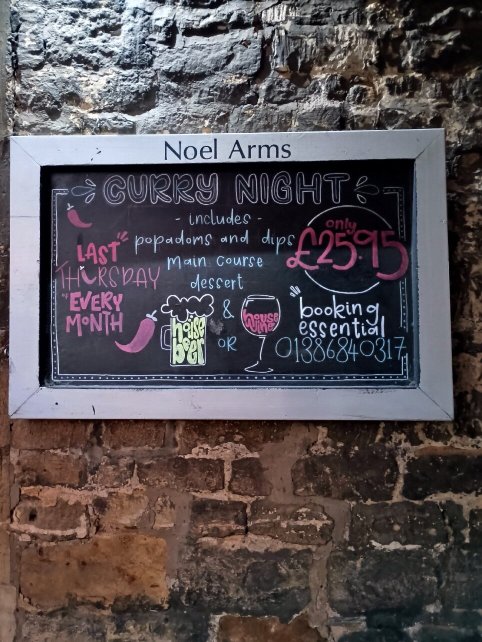 Noel Arms
CURRY NIGHT
- includes -
popadoms and dips
main course
dessert
&
house beer
OR
house wine
LAST
THURSDAY
EVERY
MONTH
only
£25.95
booking
essential
01386840317